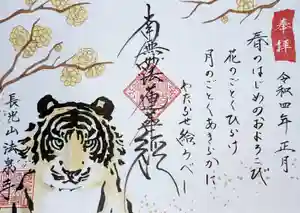 奉拝
令和四年正月
春のはじめのおよろこび
花のごとくひらけ
月のごとくあきらかに
わたらせ給うべし
南無妙法蓮華経
長光山法泉寺